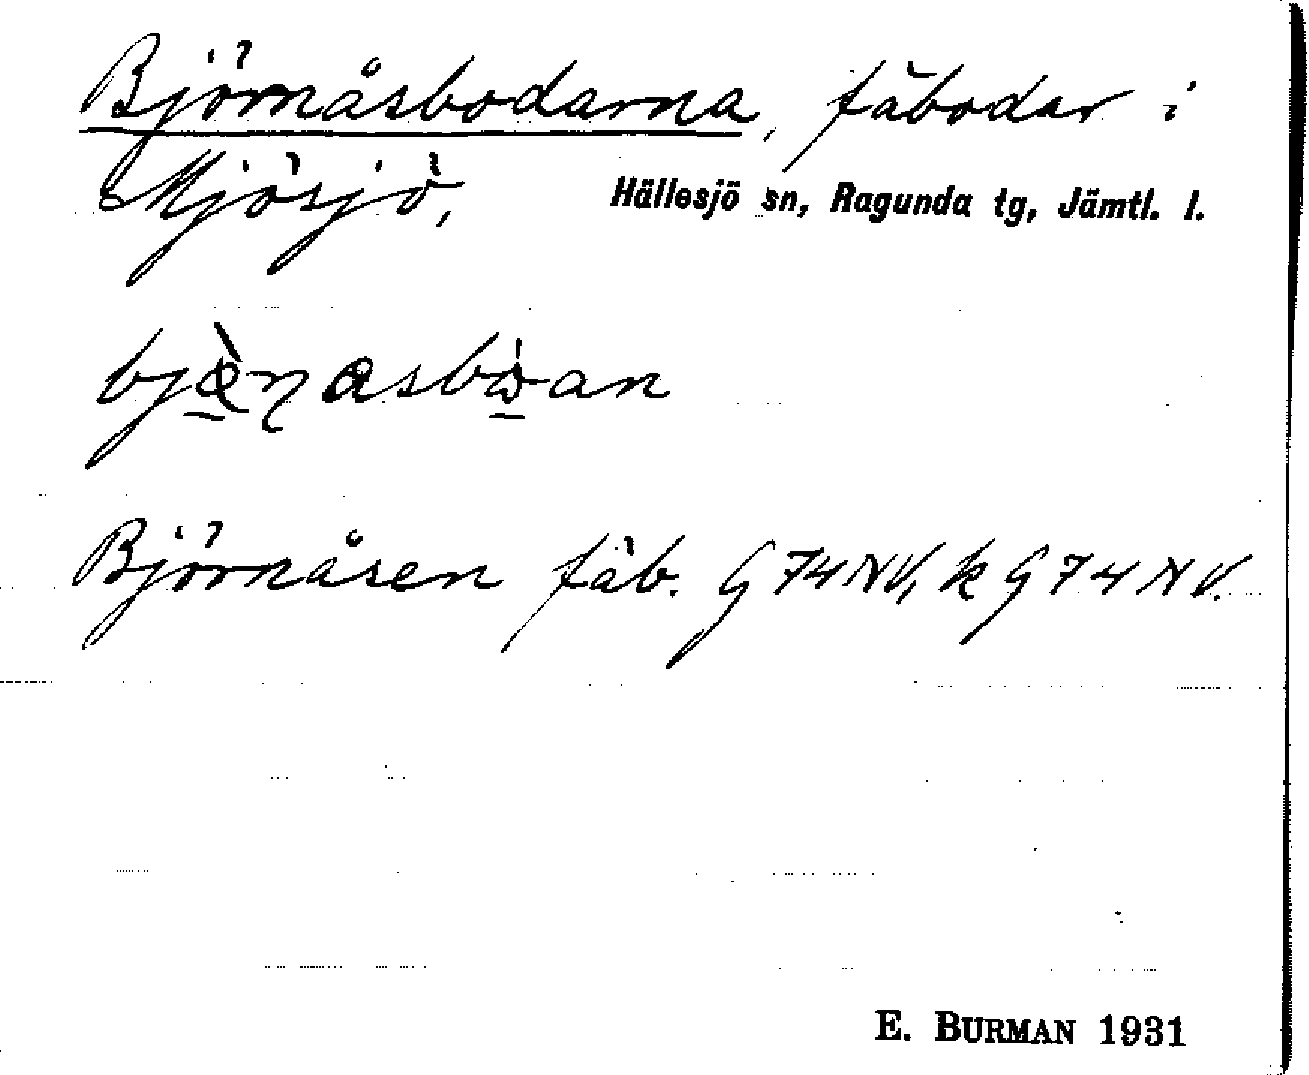 Björnåsbodarna, fäbodar i
Mjösjö, Hällesjö sn, Ragunda tg, Jämtl. l.
Björnåsen fäb. G 74 NV, k G 74 NV.
E. BURMAN 1931